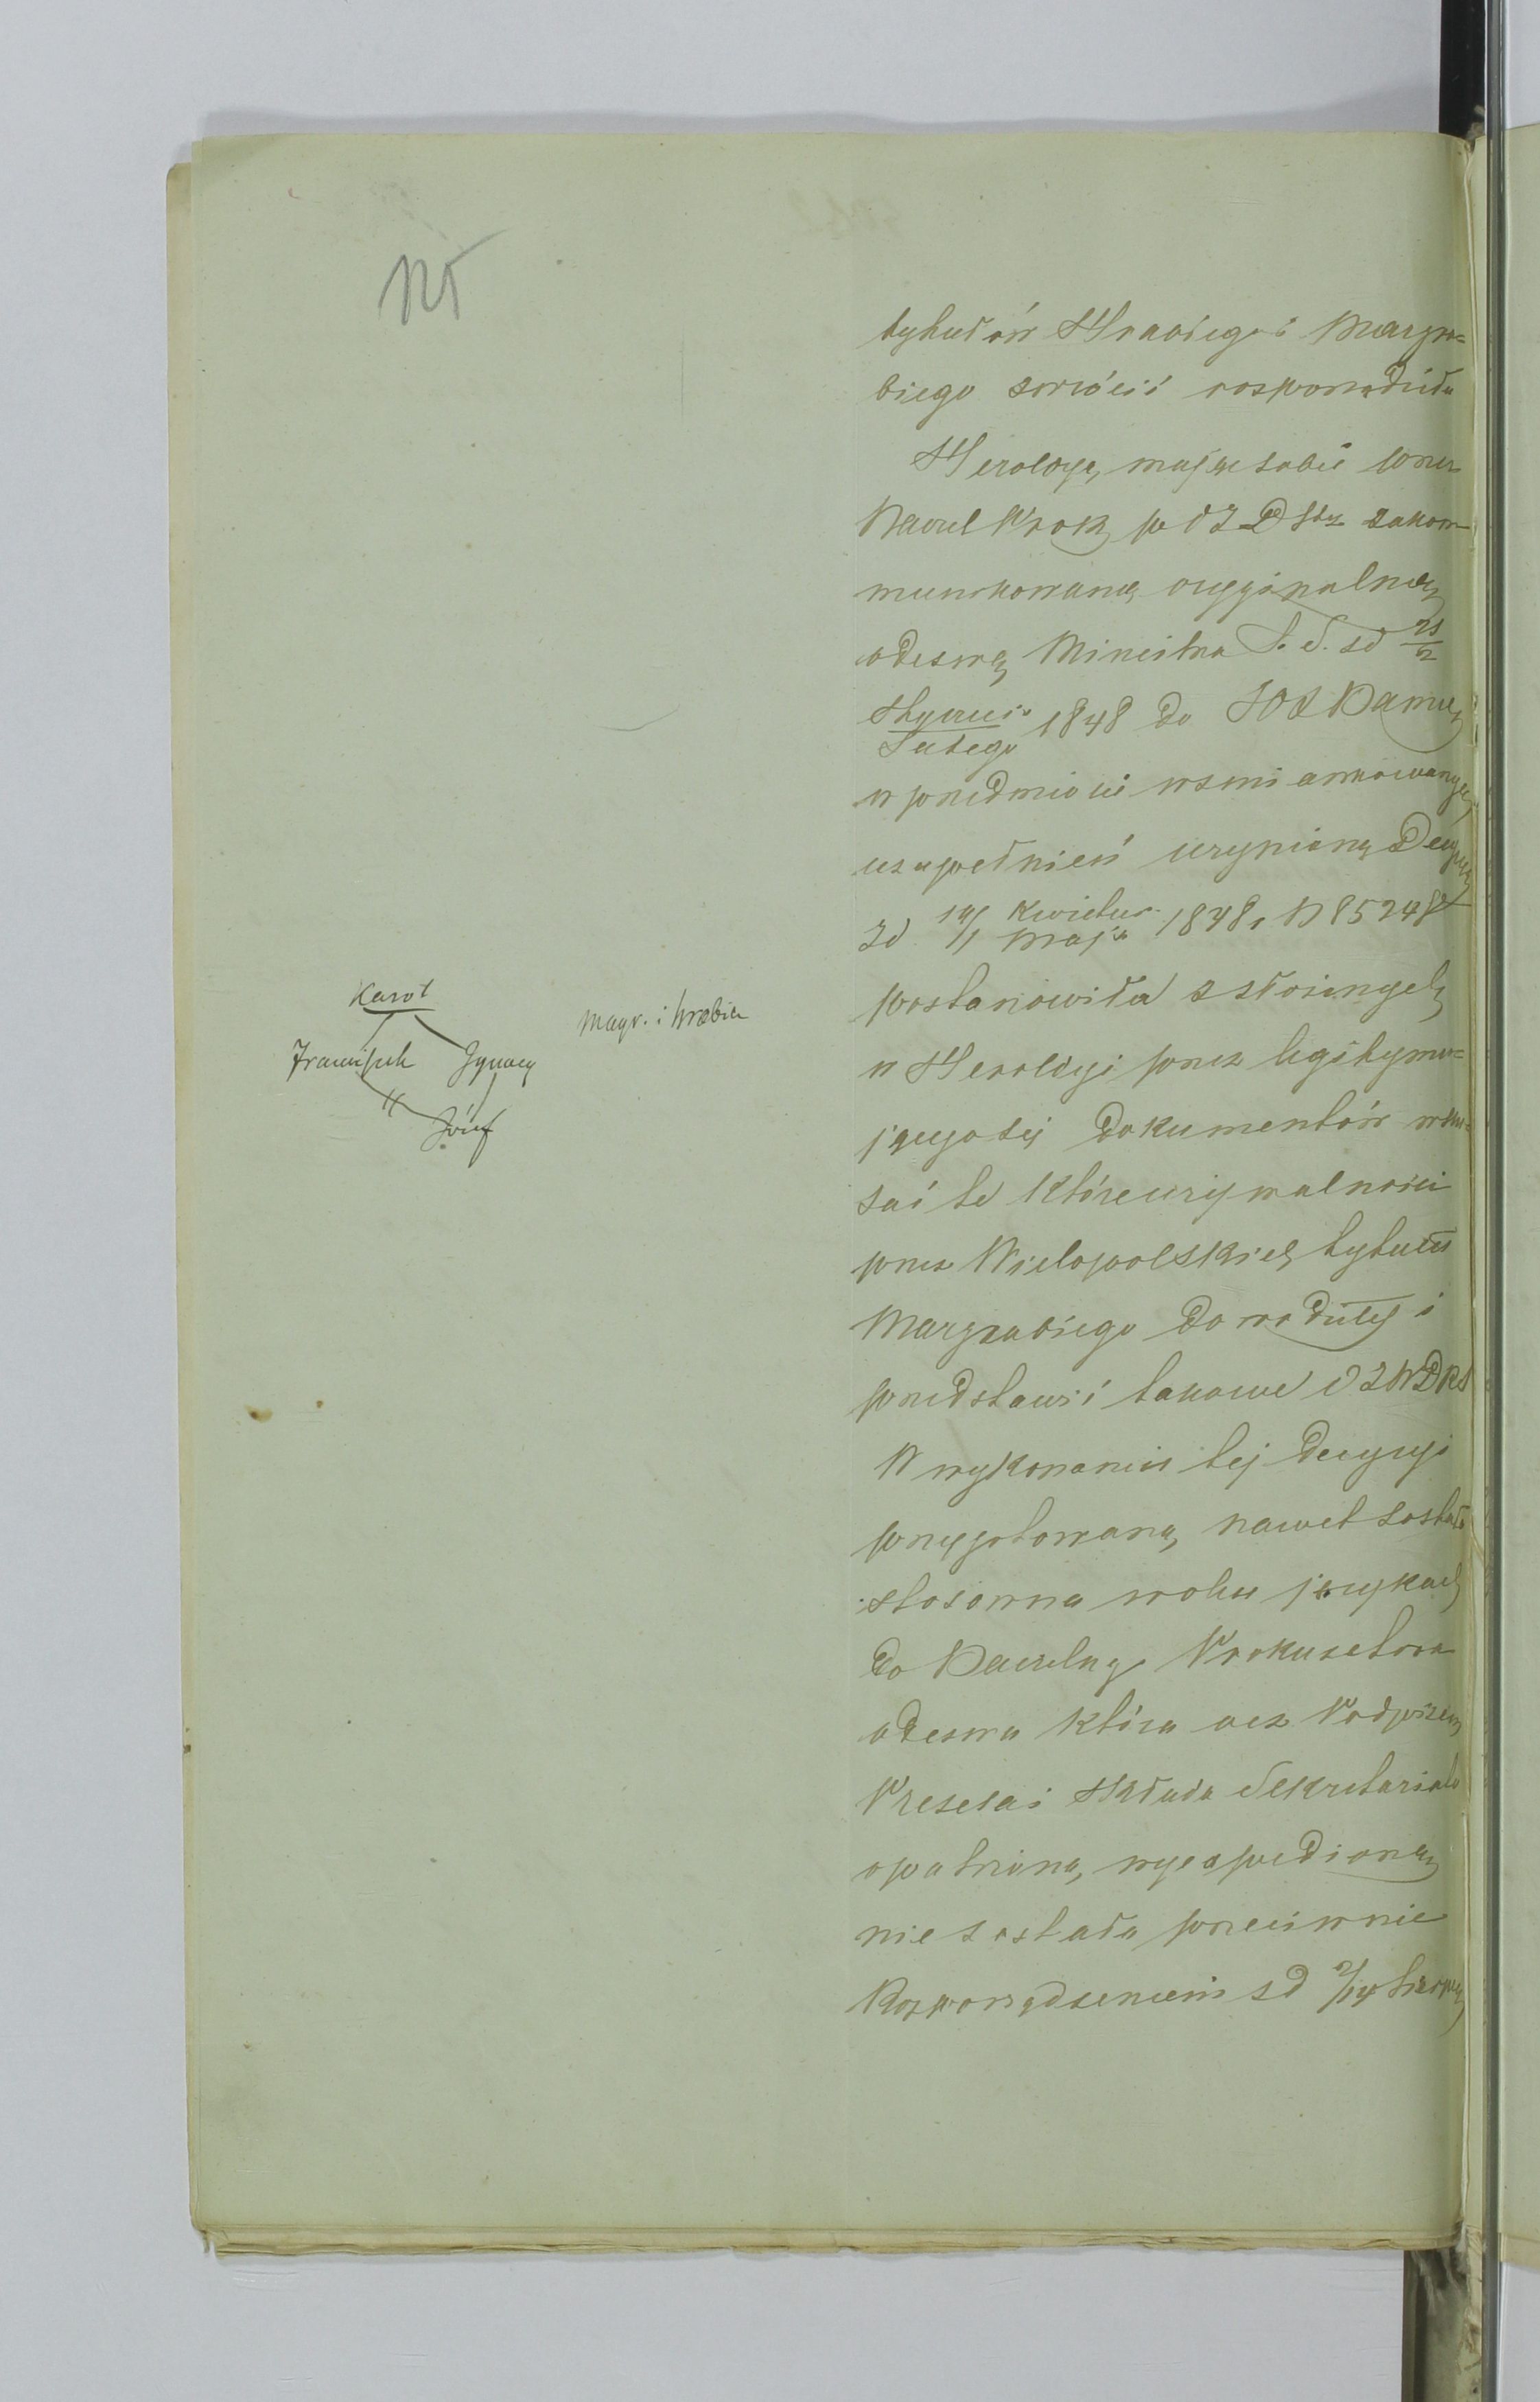 tytułów Hrabiego i Margra=
biego zwrócić rosporządziła
Heroldya, mając sobie przez
Naczel Prok w
munikowaną oryginalną
odezwę Ministra S. S. zd 21/2
Stycznia/Lutego 1848 do JOX Namies
w przedmiocie wzmiankowanych
uzupełnień uczynioną Decyzyą
Zd 19/1 Kwietnia/Maja 1848 r N 8524
postanowiła z złożonych
w Heroldyi przez legitymu=
jącego się dokumentów wska=
zać te które używalności
przez Wielopolskich tytułu
Margrabiego dowodziły i
przedstawić takowe
W wykonaniu tej decyzyi
przygotowana, nawet została
stosowna w obu językach
do Naczelnego Prokuratora
odezwa która acz Podpisem
Prezesa i Składu Sekretariatu
opatrzona, wyexpedioną
nie została przeciwnie
Rozporządzeniem zd 2/14 Sierpnia
Karol
Franciszek Ignacy
Józef
Margr. i hrabia